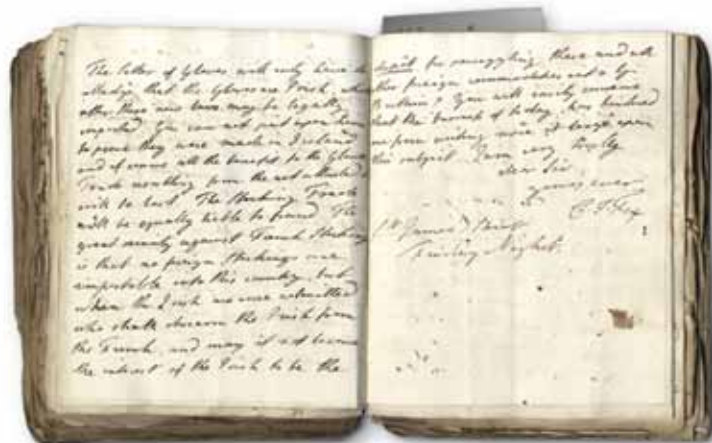 The seller of Gloves will only have to
alledge that the Gloves are Irish, which
after these new laws may be legally
imported. You can not put upon him
to prove they were made in Ireland
and of course all the benefit to the Glove
Trade resulting from the act alluded to
will be lost. The Stocking Trade
will be equally liable to fraud. The
great security against French Stockings
is that no foreign Stockings are
importable into this country, but
when the Irish are once admitted
who shall discern the Irish from
the French, and may it not become
the interest of the Irish to be the
depôt for smuggling these and all
other foreign commodities into G
Britain? You will easily conceive
that the hurry of today has hindered
me from writing more at length upon
this subject. I am very truly
dear Sir
yours ever
C. J. Fox
St. James's Street
Friday Night.